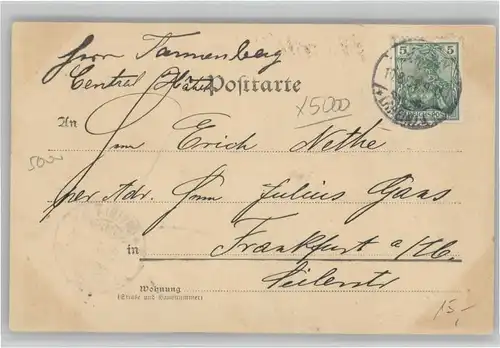 Herrn Tannenberg
Central Hotel
Postkarte
5 5
X5000
An
Herrn Erich Nethe
5000
per Adr. Herrn Julius Gans
in Frankfurt a/M.
Seilerstr
Wohnung
(Straße und Hausnummer)
15,-